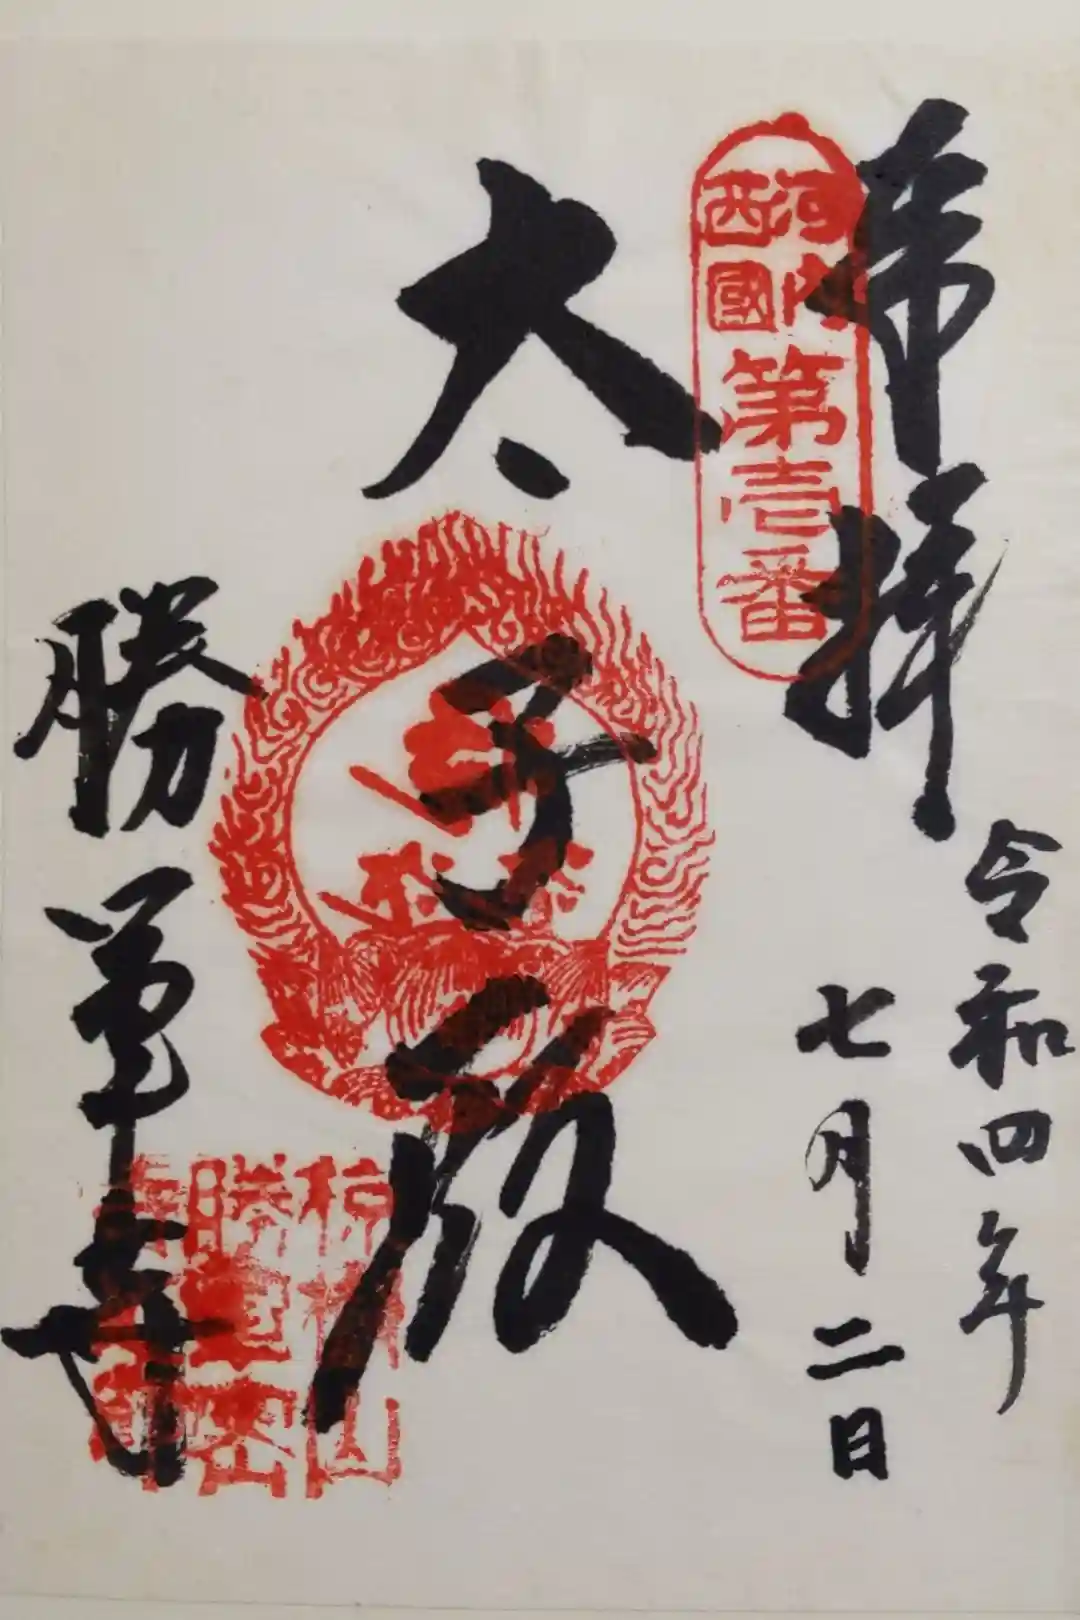 奉拝
令和四年
七月二日
河内
西國
第壱番
太子殿
勝軍寺